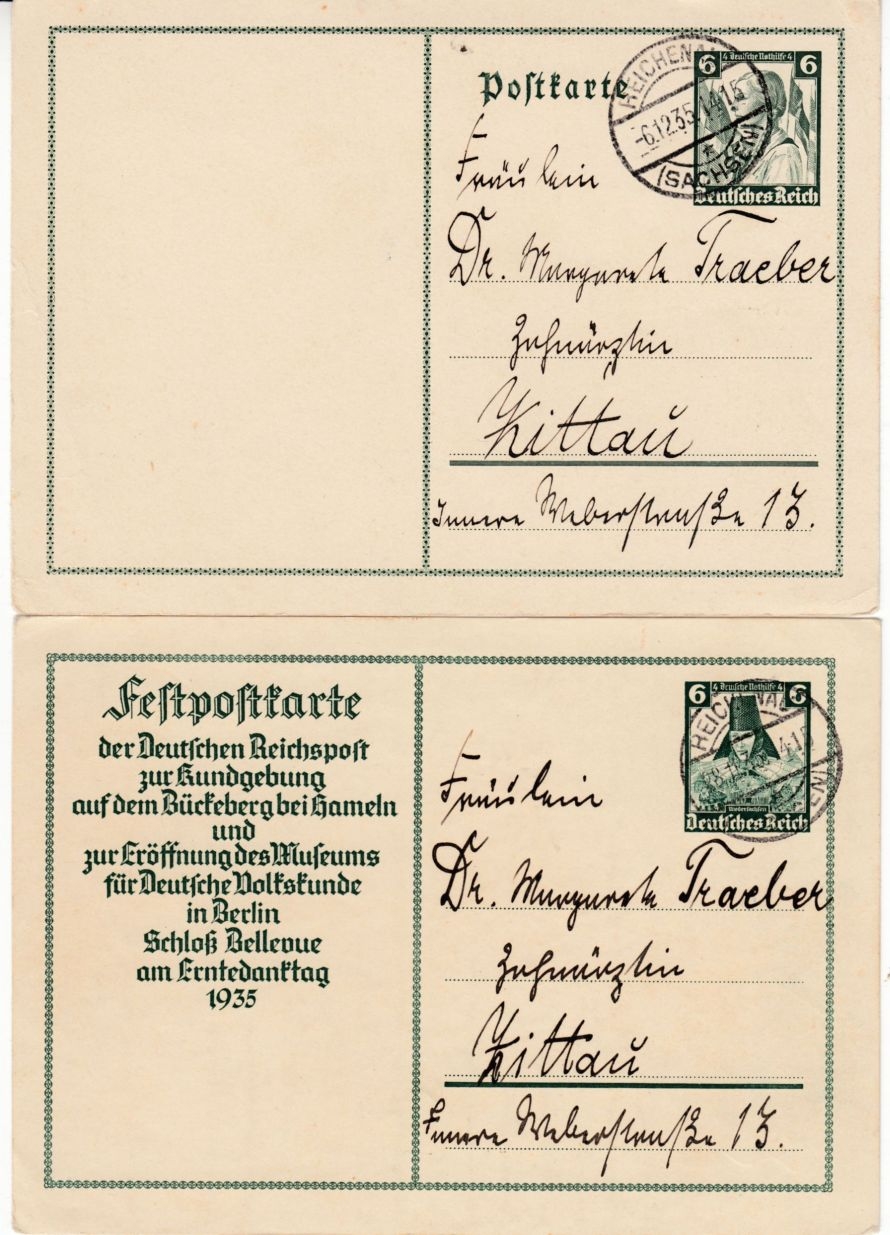 Postkarte
6 4 Deutsche Nothilfe 4 6
Deutsches Reich
REICHENAU
-6.12.35.-1415
(SACHSEN)
Fräulein
Dr. Margarete Traeber
Zahnärztin
Zittau
Innere Weberstraße 13.
Festpostkarte
der Deutschen Reichspost
zur Kundgebung
auf dem Bückeberg bei Hameln
und
zur Eröffnung des Museums
für Deutsche Volkskunde
in Berlin
Schloß Bellevue
am Erntedanktag
1935
6 4 Deutsche Nothilfe 4 6
Niedersachsen
Deutsches Reich
REICHENAU
Fräulein
Dr. Margarete Traeber
Zahnärztin
Zittau
Innere Weberstraße 13.